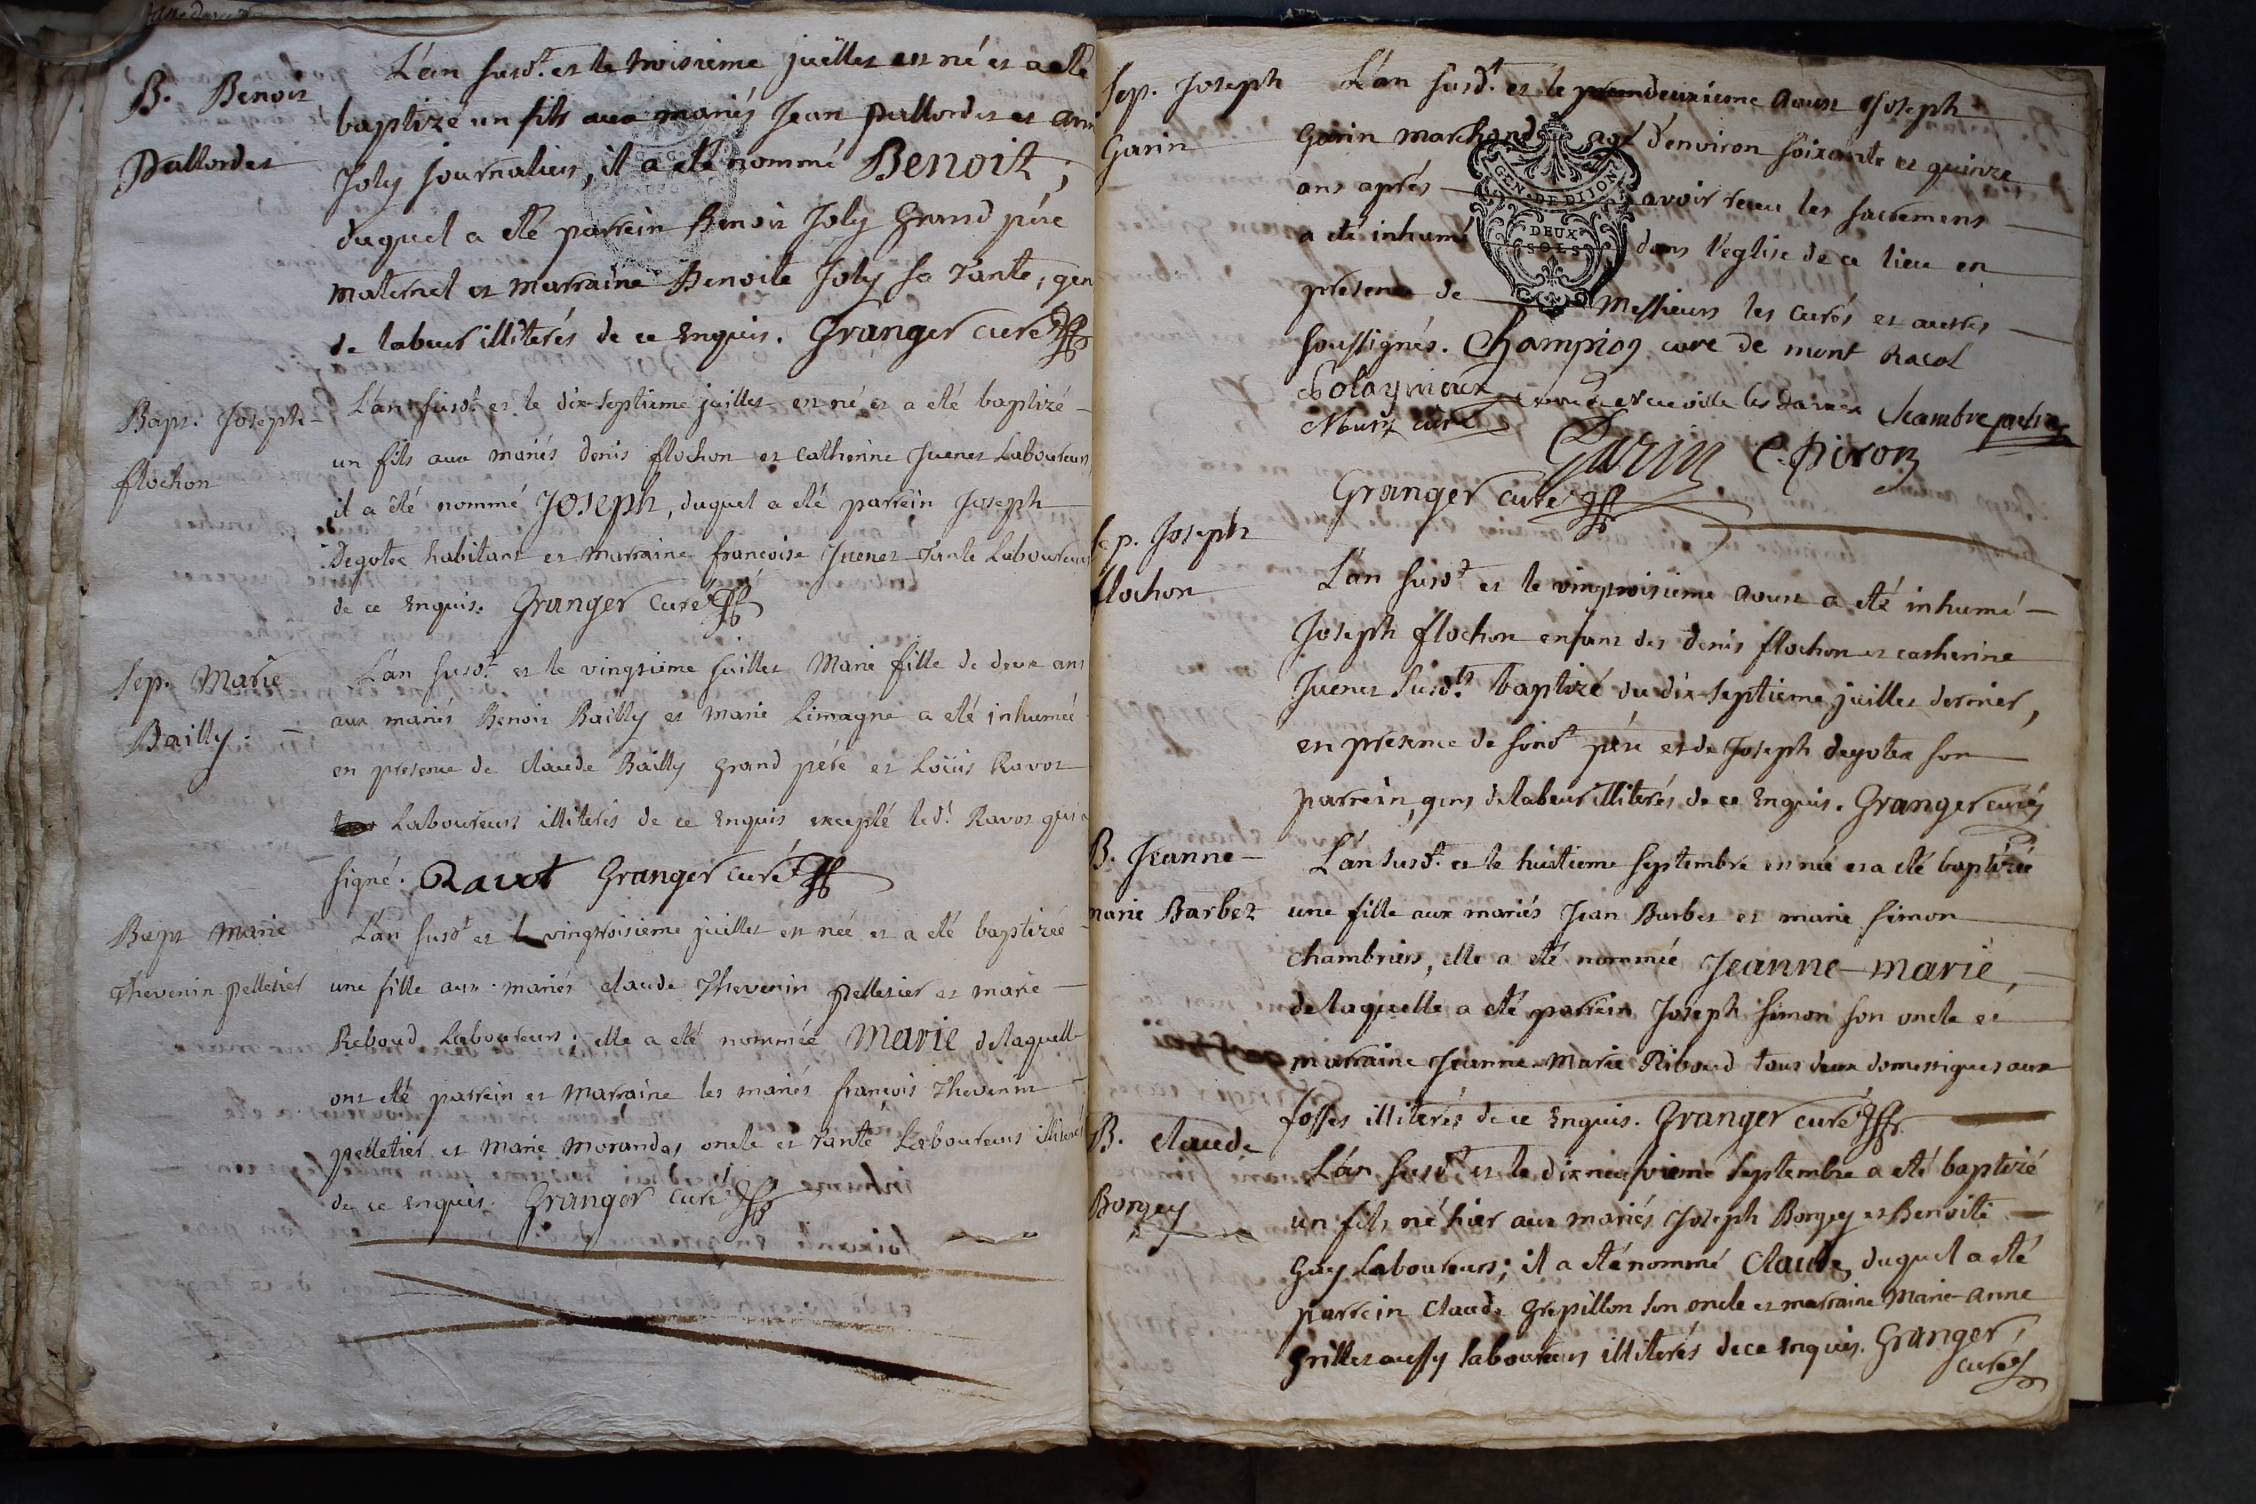 B. Benoit
Pallordet
L'an susd.t et le troisieme juillet est né et a eté
baptizé un fils aux mariés Jean Pallordet et
Joly journaliers, il a eté nommé Benoit;
duquel a eté parrein Benoit Joly Grand pére
maternel et marraine Benoite Joly sa tante, gen
de labeur illiterés de ce enquis. Granger curé
Bapt. Joseph
flochon
L'an susd.t et le dix-septieme juillet est né et a eté baptizé
un fils aux mariés denis flochon et catherine Juenet Laboureurs,
il a été nommé Joseph, duquel a eté parrein Joseph
Degotex habitant et marraine francoise Juenet tante Laboureurs
de ce enquis. Granger curé
Sep. Marie
Bailly.
L'an susd.t et le vingtieme juillet Marie fille de deux ans
aux mariés Benoit Bailly et Marie Limagne a eté inhumée
en presence de claude Bailly grand pére et Loüis Ravot
Laboureurs illiterés de ce enquis excepté led.t Ravot qui a
signé. Ravot Granger curé
Bapt Marie
Thevenin pelletier
L'an susd.t et le vingtroisieme juillet est née et a eté baptizeé
une fille aux mariés claude Thevenin pelletier et marie
Reboud Laboureurs; elle a eté nommée Marie, delaquelle
ont eté parrein et Marraine les mariés françois Thevenin
pelletier et Marie Morandas oncle et tante Laboureurs illiterés
de ce enquis. Granger curé
Sep. Joseph
Garin
L'an susd.t et le deuxieme aoust Joseph
Garin marchand agé d'environ soixante et quinze
ans aprés avoir receu les sacremens
a eté inhumé dans l'eglise de ce lieu en
presence de Messieurs les curés et autres
soussignés. Champion curé de mont Racol
GEN. DE DIJON
DEUX
SOLS
Chambre
curé
Garin C. Piron
Granger curé
Sep. Joseph
flochon
L'an susd.t et le vingtroisieme aoust a eté inhumé
Joseph flochon enfant des denis flochon et catherine
Juenet susd.ts baptizé du dix-septieme juillet dernier,
en presence de sond.t pére et de Joseph degotex son
parrein, gens delabeur illiterés de ce enquis. Granger curé
B. Jeanne
marie Barbet
L'an susd.t et le huitieme septembre est née et a eté baptizée
une fille aux mariés Jean Barbet et marie simon
chambriers, elle a eté nommée Jeanne-marie,
delaquelle a eté parrein Joseph simon son oncle et
marraine Jeanne-Marie Riboud tous deux domestiques aux
fosses illiterés de ce enquis. Granger curé
B. claude
Borgey
L'an susd.t et le dixneuvieme septembre a eté baptizé
un fils né hier aux mariés Joseph Borgey et Benoite
Gay Laboureurs; il a eté nommé Claude, duquel a eté
parrein claude Grepillon son oncle et marraine Marie-anne
Grillet aussy laboureurs illiterés dece enquis. Granger
curé